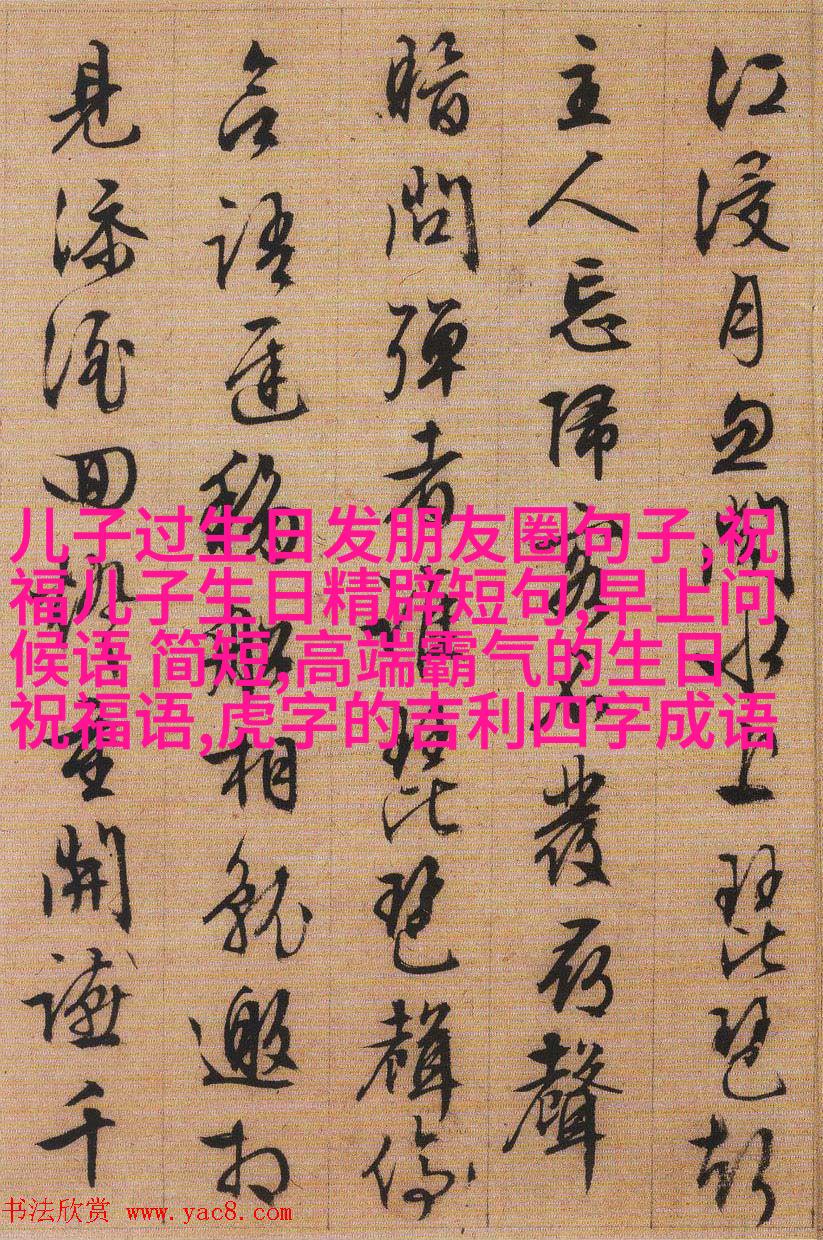 江浸月忽聞水上琵琶聲
主人忘歸客不發尋聲
暗問彈者誰琵琶聲停
語遲移船相就邀相
見添酒回燈重開讌千
儿子过生日发朋友圈句子,祝
福儿子生日精辟短句,早上问
候语 简短,高端霸气的生日
祝福语,虎字的吉利四字成语
书法欣赏 www.yac8.com